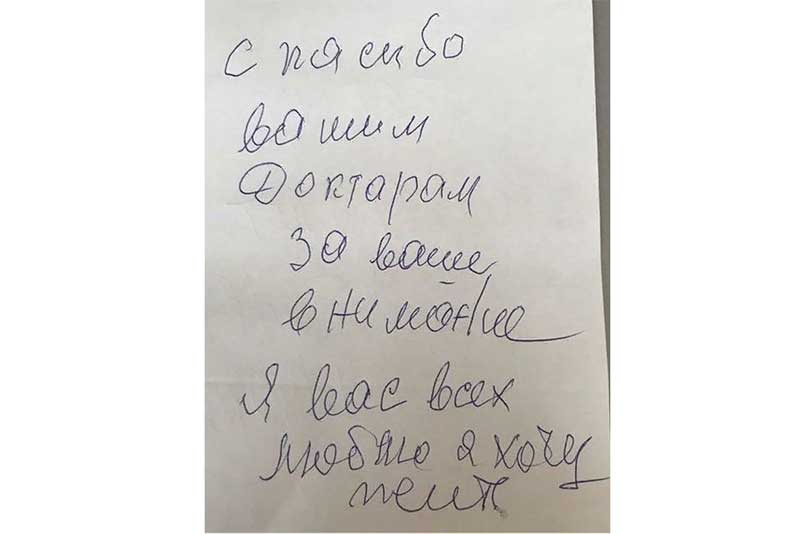 спасибо
вашим
Доктарам
за ваше
внимание
я вас всех
люблю я хочу